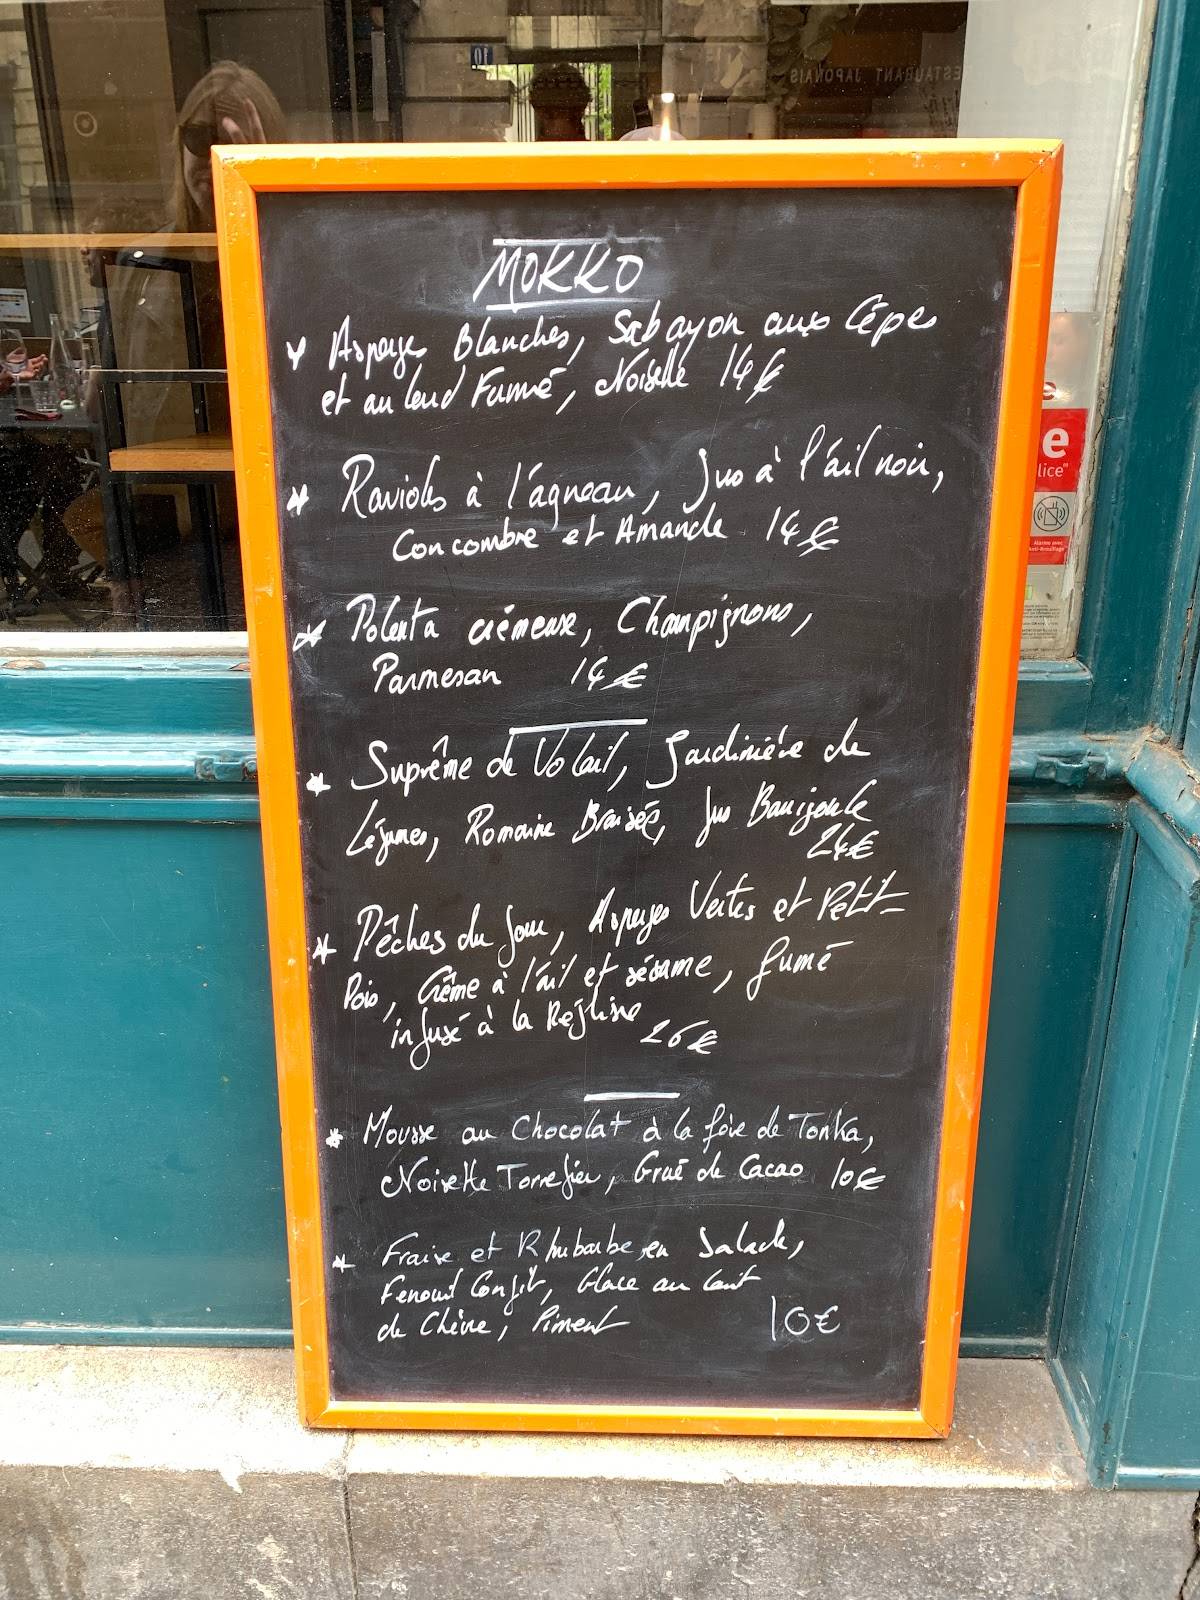 10
RESTAURANT JAPONAIS
MOKKO
Asperges Blanches, Sabayon aux Cèpes
et au lard Fumé, Noisette 14€
Raviolis à l'agneau, Jus à l'ail noir,
Concombre et Amande 14€
Polenta crémeuse, Champignons,
Parmesan 14€
Suprême de Volail, Jardinière de
Légumes, Romaine Braisée, Jus Barigoule
24€
Pêches du Jour, Asperges Vertes et Petit-
Pois, Crème à l'ail et sésame, fumé
infusé à la Réglisse
26€
Mousse au Chocolat à la fève de Tonka,
Noisette Torrefiée, Grué de Cacao 10€
Fraise et Rhubarbe en Salade,
Fenouil Confit, Glace au lait
de Chèvre, Piment 10€
e
lice"